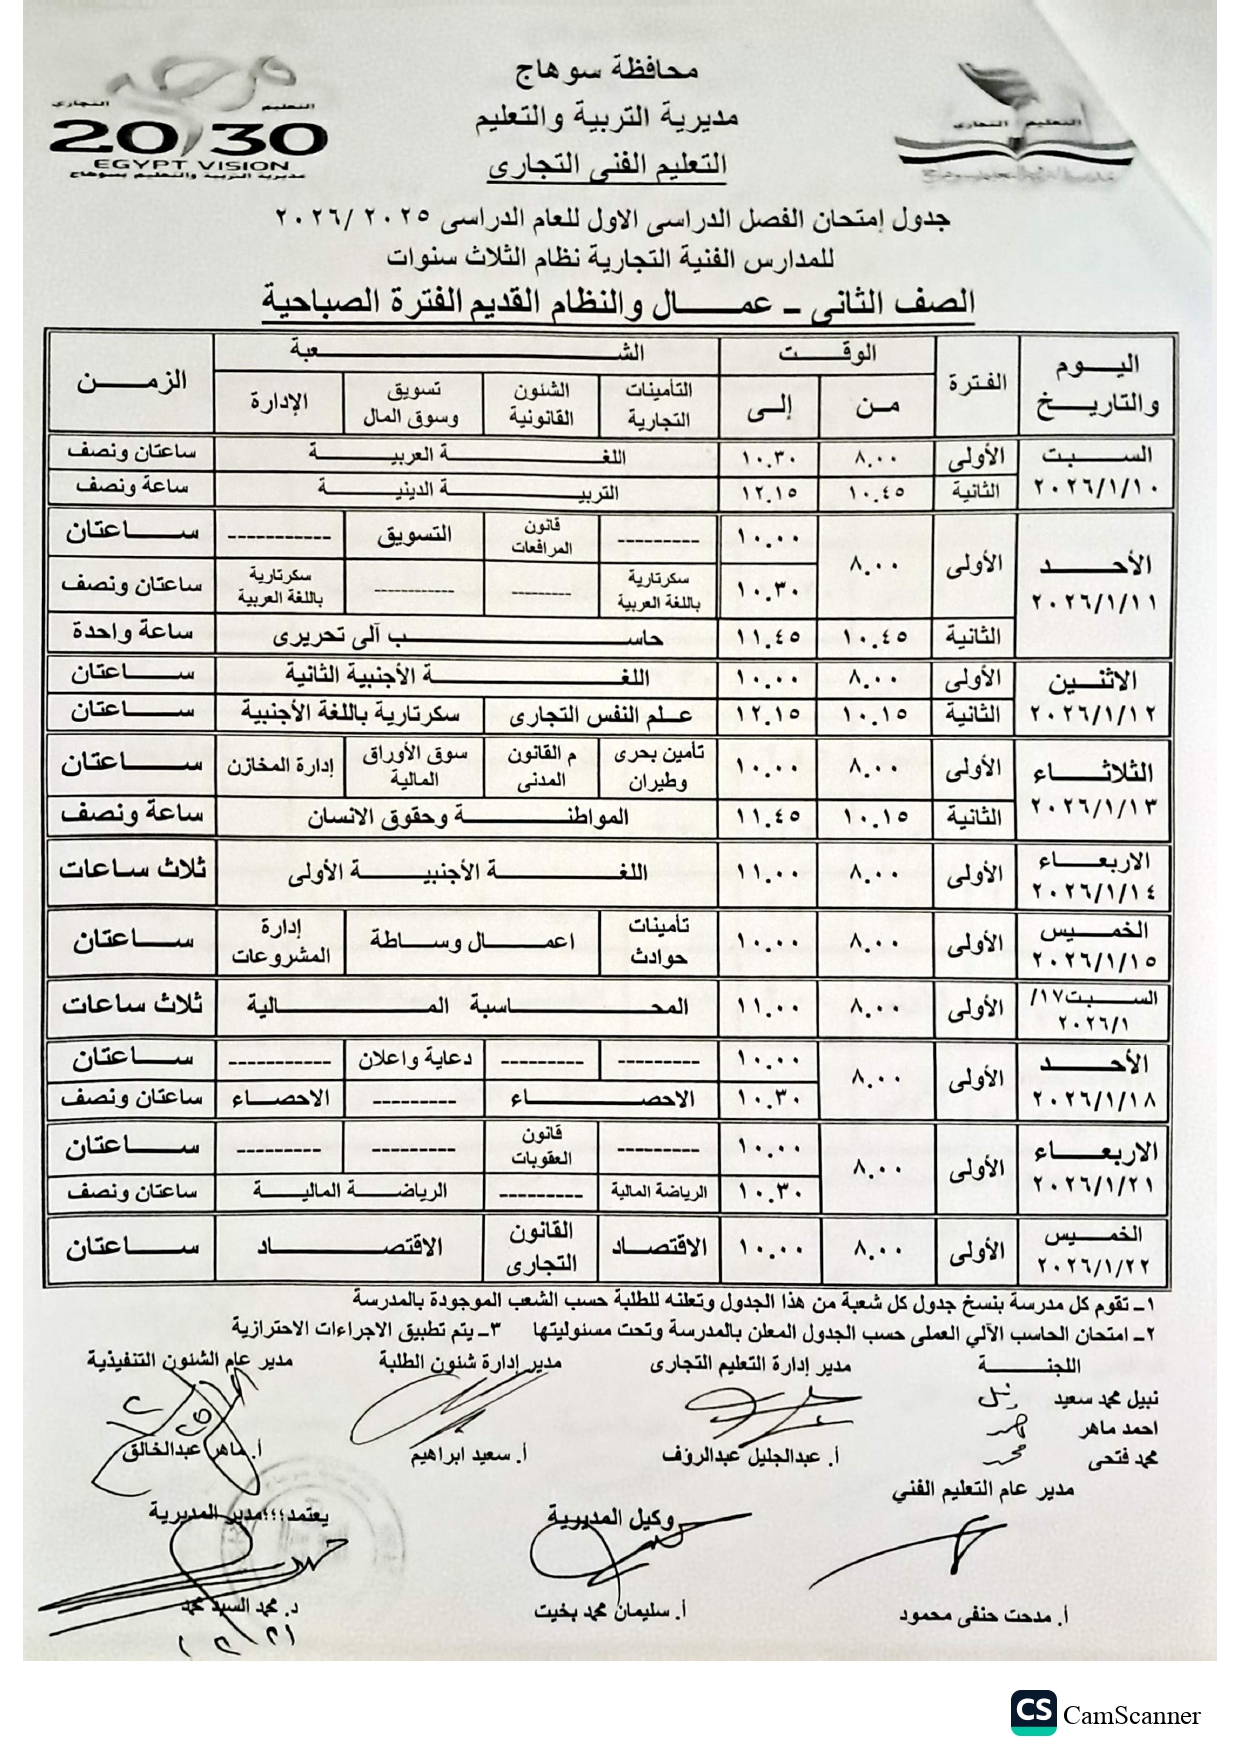 محافظة سوهاج
مديرية التربية والتعليم
التعليم الفنى التجارى
التعليم التجارى
2030
EGYPT VISION
مديرية التربية والتعليم بسوهاج
التعليم التجارى
جدول إمتحان الفصل الدراسى الاول للعام الدراسى ٢٠٢٥ /٢٠٢٦
للمدارس الفنية التجارية نظام الثلاث سنوات
الصف الثانى - عمال والنظام القديم الفترة الصباحية
اليوم والتاريخ الفترة الوقت الشعبة الزمن
من إلى التأمينات التجارية الشئون القانونية تسويق وسوق المال الإدارة
السبت ٢٠٢٦/١/١٠ الأولى ٨.٠٠ ١٠.٣٠ اللغة العربية ساعتان ونصف
الثانية ١٠.٤٥ ١٢.١٥ التربية الدينية ساعة ونصف
الأحد ٢٠٢٦/١/١١ الأولى ٨.٠٠ ١٠.٠٠ --------- قانون المرافعات التسويق ----------- ساعتان
١٠.٣٠ سكرتارية باللغة العربية ------- --------- سكرتارية باللغة العربية ساعتان ونصف
الثانية ١٠.٤٥ ١١.٤٥ حاسب آلى تحريرى ساعة واحدة
الاثنين ٢٠٢٦/١/١٢ الأولى ٨.٠٠ ١٠.٠٠ اللغة الأجنبية الثانية ساعتان
الثانية ١٠.١٥ ١٢.١٥ علم النفس التجارى سكرتارية باللغة الأجنبية ساعتان
الثلاثاء ٢٠٢٦/١/١٣ الأولى ٨.٠٠ ١٠.٠٠ تأمين بحرى وطيران م القانون المدنى سوق الأوراق المالية إدارة المخازن ساعتان
الثانية ١٠.١٥ ١١.٤٥ المواطنة وحقوق الانسان ساعة ونصف
الاربعاء ٢٠٢٦/١/١٤ الأولى ٨.٠٠ ١١.٠٠ اللغة الأجنبية الأولى ثلاث ساعات
الخميس ٢٠٢٦/١/١٥ الأولى ٨.٠٠ ١٠.٠٠ تأمينات حوادث اعمال وساطة إدارة المشروعات ساعتان
السبت١٧/ ٢٠٢٦/١ الأولى ٨.٠٠ ١١.٠٠ المحاسبة المالية ثلاث ساعات
الأحد ٢٠٢٦/١/١٨ الأولى ٨.٠٠ ١٠.٠٠ --------- --------- دعاية واعلان ----------- ساعتان
١٠.٣٠ الاحصاء --------- الاحصاء ساعتان ونصف
الاربعاء ٢٠٢٦/١/٢١ الأولى ٨.٠٠ ١٠.٠٠ --------- قانون العقوبات --------- --------- ساعتان
١٠.٣٠ الرياضة المالية --------- الرياضة المالية ساعتان ونصف
الخميس ٢٠٢٦/١/٢٢ الأولى ٨.٠٠ ١٠.٠٠ الاقتصاد القانون التجارى الاقتصاد ساعتان
١- تقوم كل مدرسة بنسخ جدول كل شعبة من هذا الجدول وتعلنه للطلبة حسب الشعب الموجودة بالمدرسة
٢- امتحان الحاسب الآلي العملى حسب الجدول المعلن بالمدرسة وتحت مسئوليتها ٣- يتم تطبيق الاجراءات الاحترازية
اللجنة مدير إدارة التعليم التجارى مدير إدارة شئون الطلبة مدير عام الشئون التنفيذية
نبيل محمد سعيد
احمد ماهر
محمد فتحى أ. عبدالجليل عبدالرؤف أ. سعيد ابراهيم أ. ماهر عبدالخالق
مدير عام التعليم الفني وكيل المديرية يعتمد؛؛؛مدير المديرية
أ. مدحت حنفى محمود أ. سليمان محمد بخيت د. محمد السيد محمد
CS CamScanner